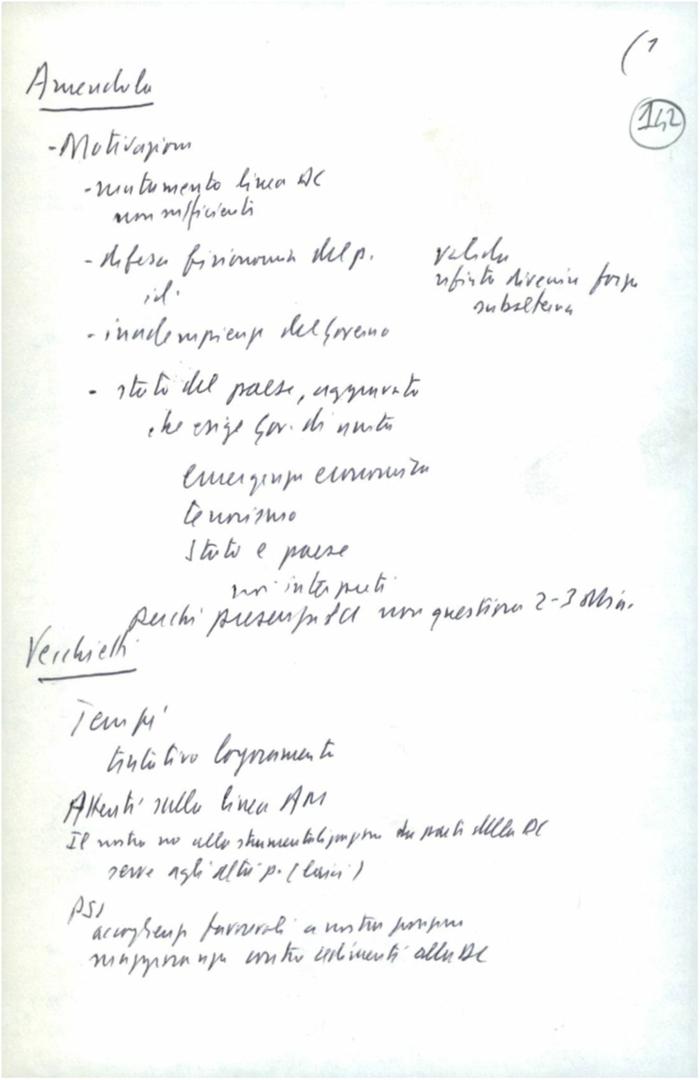 (1
142
Amendola
- Motivazioni
- mutamento linea DC
non sufficienti
- difesa fisionomia del p.
id.
valida
rifiuto divenire forza
subalterna
- inadempienze del Governo
- stato del paese, aggravato
che esige Gov. di unità
emergenza economica
terrorismo
Stato e paese
noi interpreti
perché presenza PCI non questione 2-3 Min.
Vecchietti
Tempi
tentativo logoramento
Attenti sulla linea AM
Il nostro no alla strumentalizzazione da parte della DC
serve agli altri p. (laici)
PSI
accoglienze favorevoli a nostra
maggioranza contro cedimenti alla DC